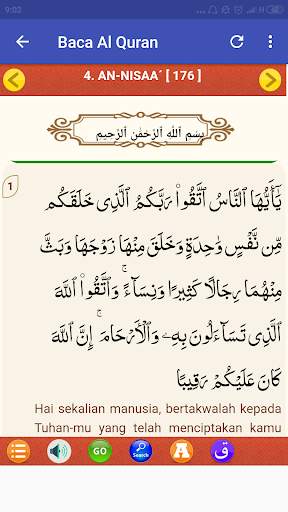 9:02
Baca Al Quran
4. AN-NISAA´ [ 176 ]
بِسْمِ ٱللَّهِ ٱلرَّحْمَٰنِ ٱلرَّحِيمِ
1
يَٰٓأَيُّهَا ٱلنَّاسُ ٱتَّقُوا۟ رَبَّكُمُ ٱلَّذِى خَلَقَكُم
مِّن نَّفْسٍ وَٰحِدَةٍ وَخَلَقَ مِنْهَا زَوْجَهَا وَبَثَّ
مِنْهُمَا رِجَالًا كَثِيرًا وَنِسَآءً ۚ وَٱتَّقُوا۟ ٱللَّهَ
ٱلَّذِى تَسَآءَلُونَ بِهِۦ وَٱلْأَرْحَامَ ۚ إِنَّ ٱللَّهَ
كَانَ عَلَيْكُمْ رَقِيبًا
Hai sekalian manusia, bertakwalah kepada
Tuhan-mu yang telah menciptakan kamu
GO
Search
A
ق